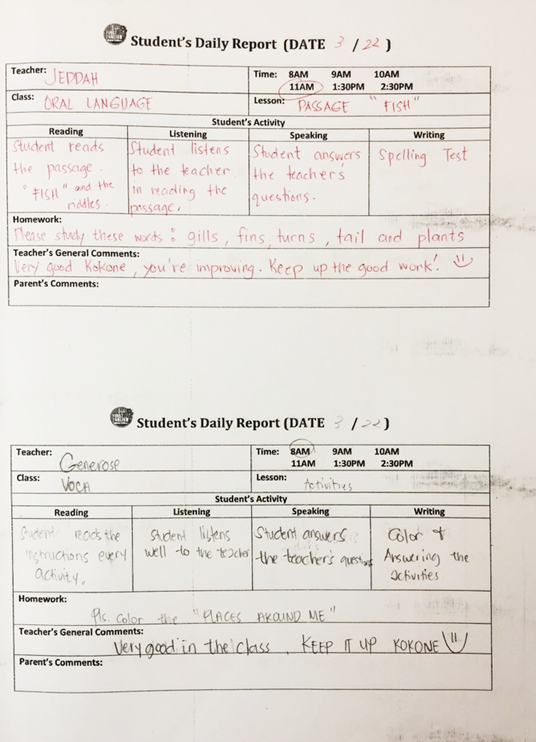 Student's Daily Report (DATE 3 / 22 )
Teacher: JEDDAH
Time: 8AM 9AM 10AM
11AM 1:30PM 2:30PM
Class: ORAL LANGUAGE
Lesson: PASSAGE "FISH"
Student's Activity
Reading Listening Speaking Writing
Student reads
the passage.
"FISH" and the
riddles.
Student listens
to the teacher
in reading the
passage.
Student answers
the teacher's
questions.
Spelling Test
Homework:
Please study these words: gills, fins, turns, tail and plants
Teacher's General Comments:
Very good Kokone, you're improving. Keep up the good work!
Parent's Comments:
Student's Daily Report (DATE 3 / 22 )
Teacher: Generose
Time: 8AM 9AM 10AM
11AM 1:30PM 2:30PM
Class: VOCA
Lesson: Activities
Student's Activity
Reading Listening Speaking Writing
Student reads the
instructions every
activity.
Student listens
well to the teacher
Student answers
the teacher's questions
Color &
Answering the
activities
Homework:
Pls. Color the "PLACES AROUND ME"
Teacher's General Comments:
Very good in the class. KEEP IT UP KOKONE
Parent's Comments: